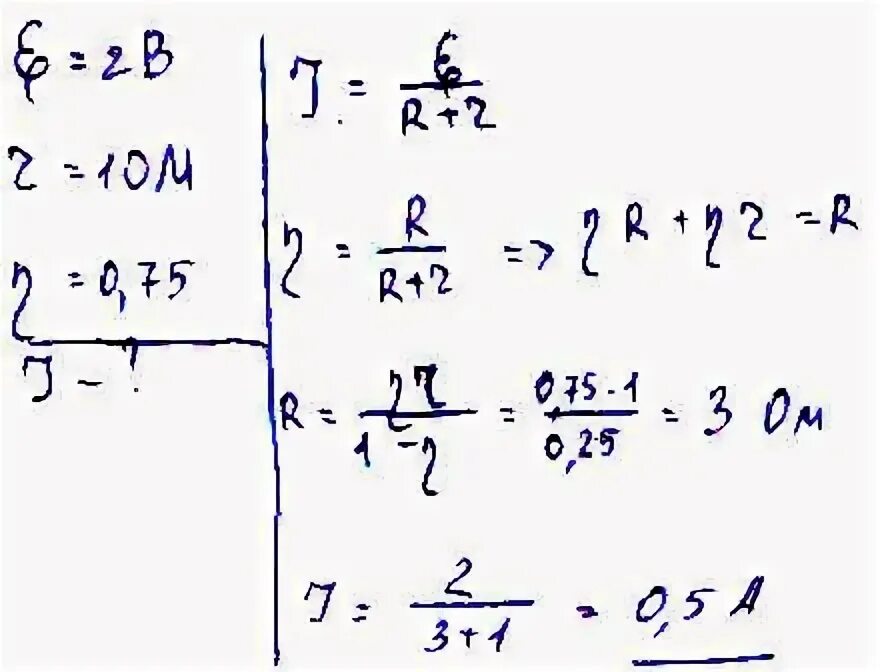 ℰ = 2В
r = 1 Ом
η = 0,75
I - ?
I = ℰ / (R + r)
η = R / (R + r) => ηR + ηr = R
R = ηr / (1 - η) = 0,75 · 1 / 0,25 = 3 Ом
I = 2 / (3 + 1) = 0,5 А